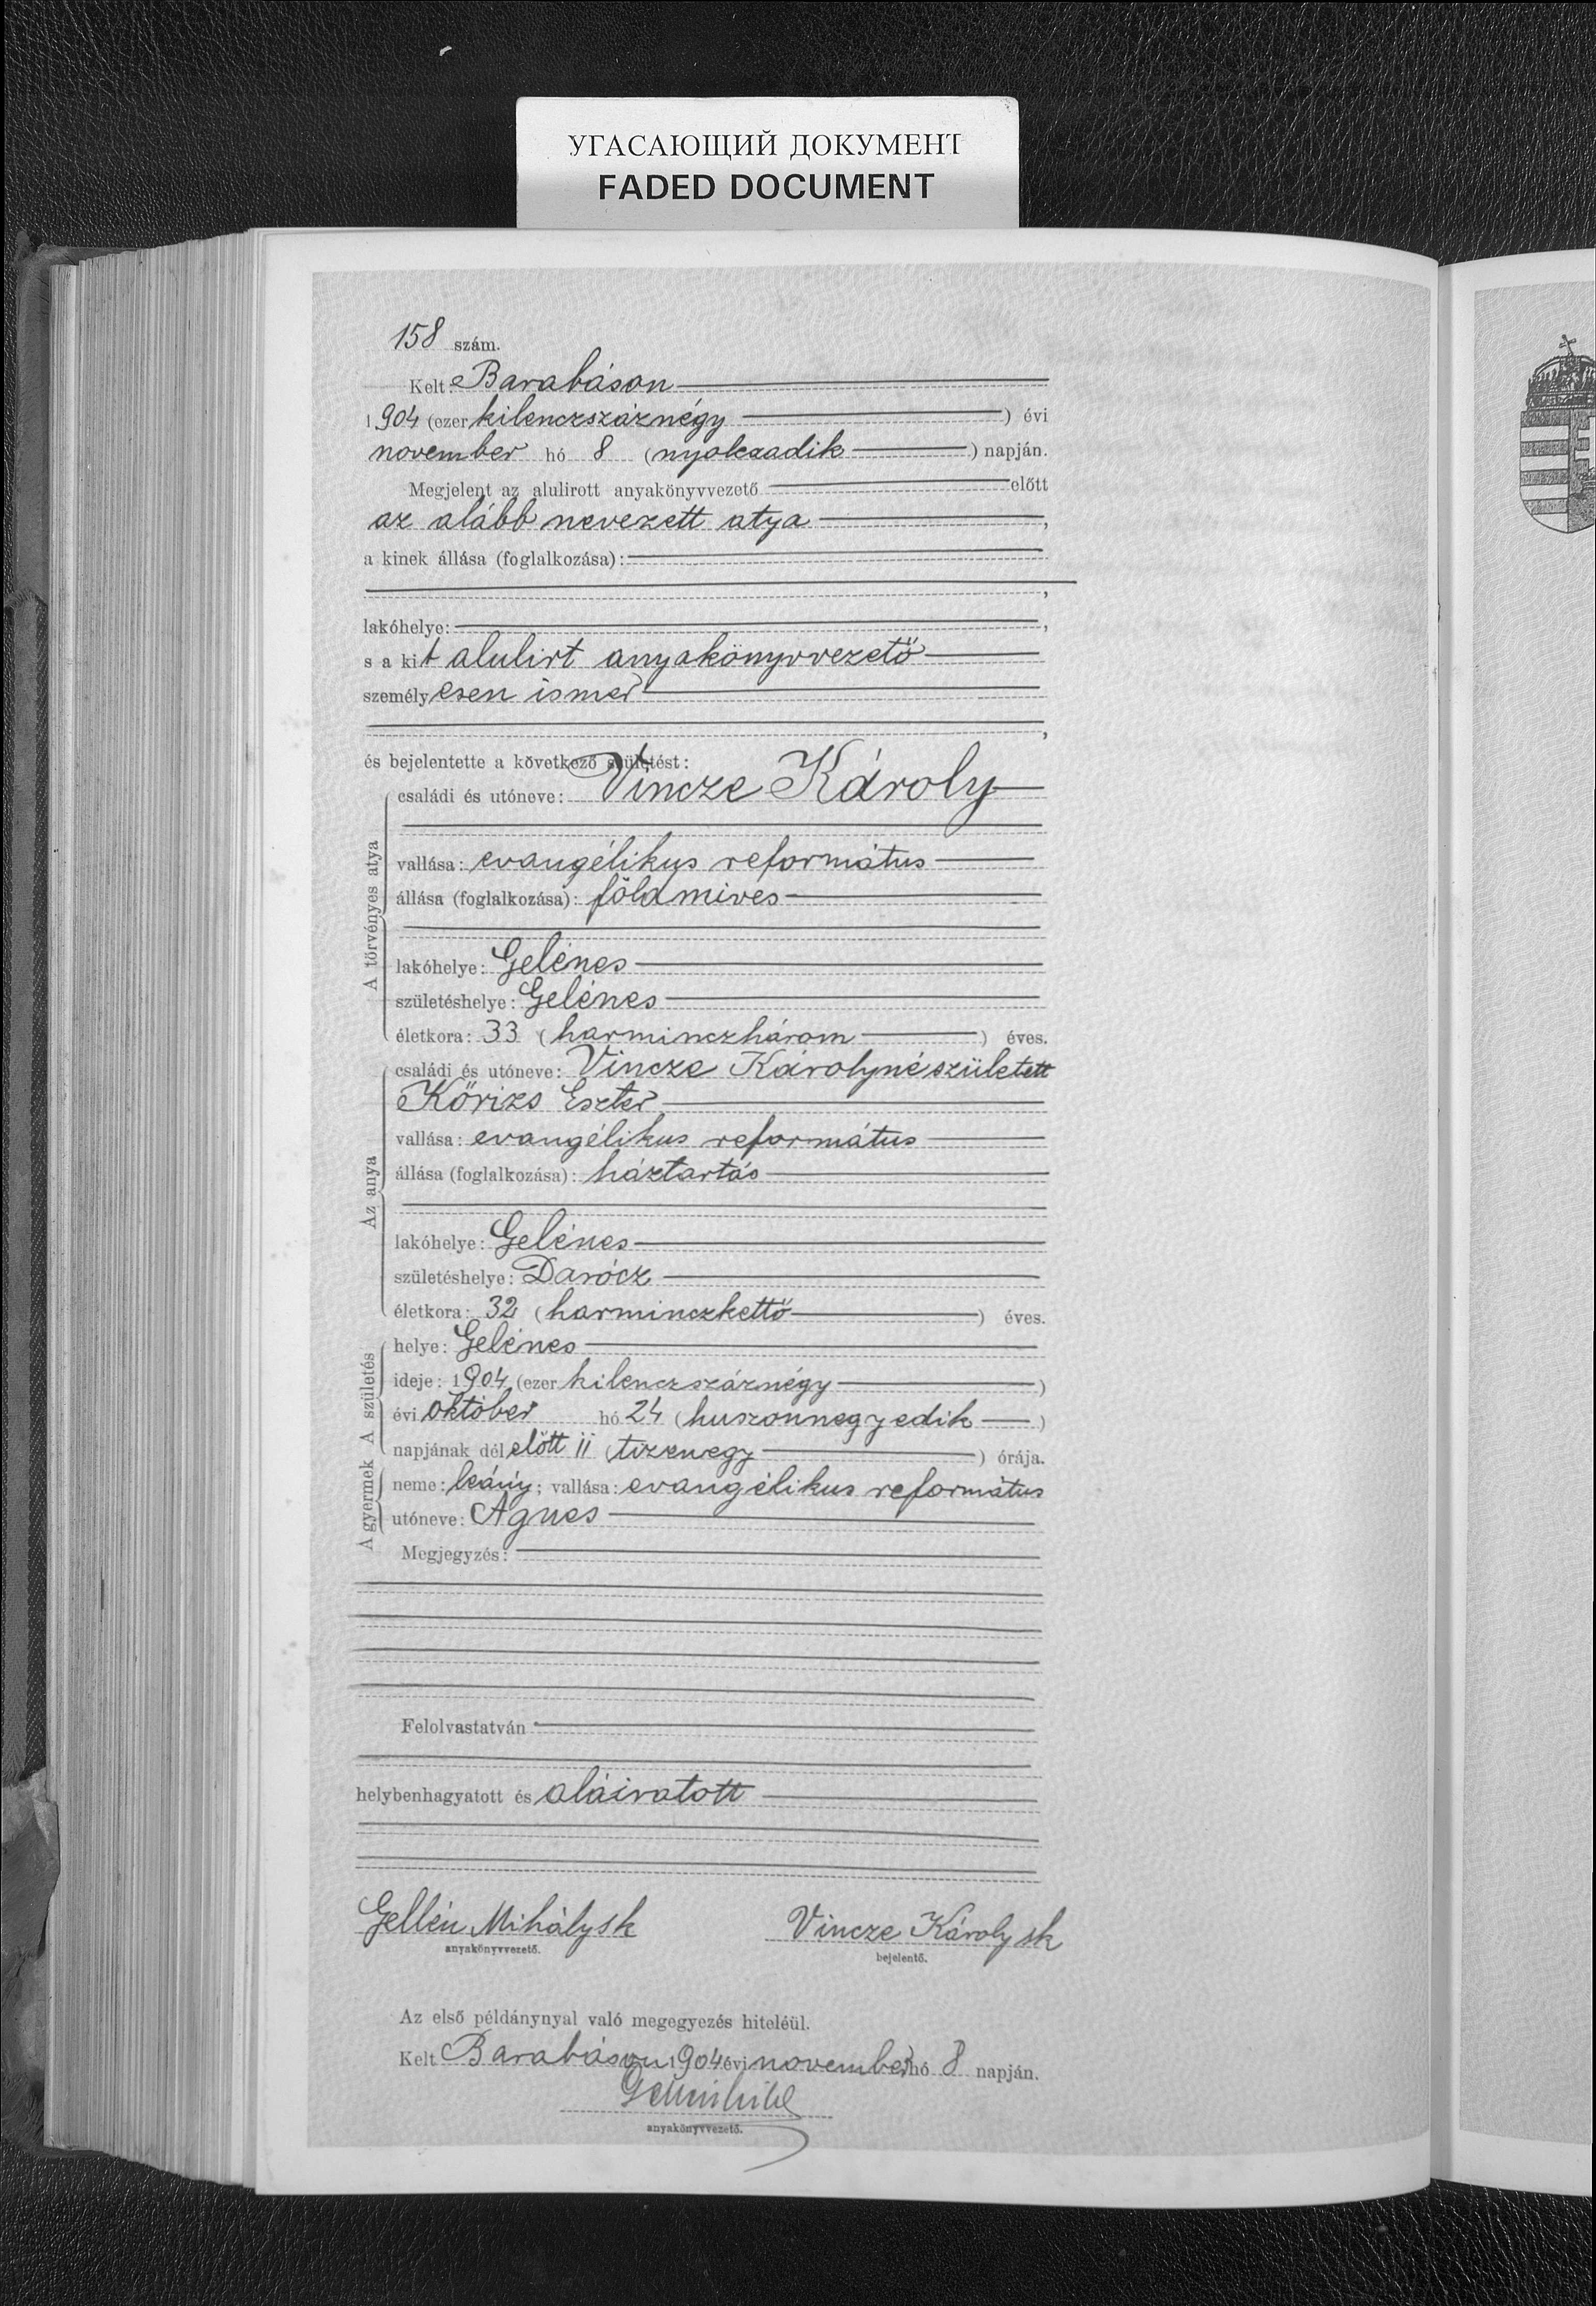 УГАСАЮЩИЙ ДОКУМЕНТ
FADED DOCUMENT
158 szám.
Kelt: Barabáson
1904 (ezer kilenczszáznégy) évi
november hó 8 (nyolczadik) napján.
Megjelent az alulirott anyakönyvvezető előtt
az alább nevezett atya,
a kinek állása (foglalkozása):
,
lakóhelye:,
s a kit alulirt anyakönyvvezető
személyesen ismer
,
és bejelentette a következő születést:
A törvényes atya
családi és utóneve: Vincze Károly
vallása: evangélikus református
állása (foglalkozása): földmives
lakóhelye: Gelénes
születéshelye: Gelénes
életkora: 33 (harminczhárom) éves.
Az anya
családi és utóneve: Vincze Károlyné született
Kőrizs Eszter
vallása: evangélikus református
állása (foglalkozása): háztartás
lakóhelye: Gelénes
születéshelye: Darócz
életkora: 32 (harminczkettő) éves.
A születés
helye: Gelénes
ideje: 1904 (ezer kilenczszáznégy)
évi október hó 24 (huszonnegyedik)
napjának délelőtt 11 (tizenegy) órája.
A gyermek
neme: leány; vallása: evangélikus református
utóneve: Ágnes
Megjegyzés:
Felolvastatván
helybenhagyatott és aláiratott
Gellén Mihály sk Vincze Károly sk
anyakönyvvezető. bejelentő.
Az első példánynyal való megegyezés hiteléül.
Kelt Barabáson 1904 évi november hó 8 napján.
anyakönyvvezető.